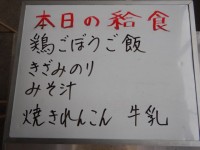 本日の給食
鶏ごぼうご飯
きざみのり
みそ汁
焼きれんこん 牛乳